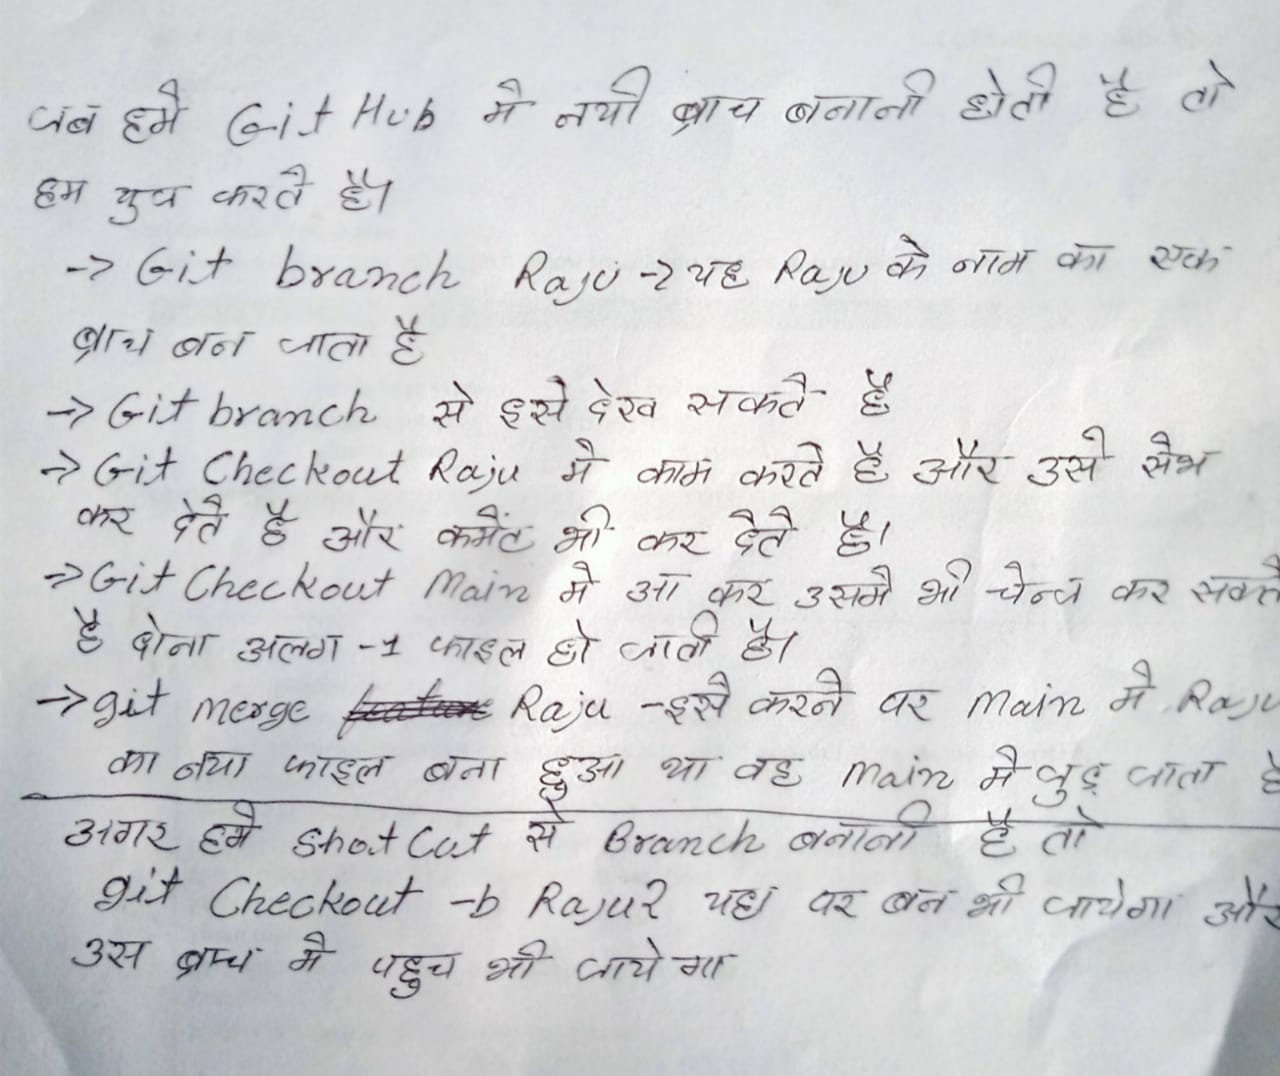 जब हमे GitHub मे नयी ब्राच बनानी होती है तो
हम युज करते है।
-> Git branch Raju -> यह Raju के नाम का एक
ब्राच बन जाता है
-> Git branch से इसे देख सकते है
-> Git Checkout Raju मे काम करते है और उसे सेभ
कर देते है और कमेंट भी कर देते है।
-> Git Checkout Main मे आ कर उसमे भी चेन्ज कर सकते
है दोना अलग -1 फाइल हो जाती है।
-> git merge Raju -इसे करने पर Main मे Raju
का नया फाइल बना हुआ था वह Main मे जुड़ जाता है
अगर हमे ShotCut से Branch बनानी है तो
git Checkout -b Raju2 यहा पर बन भी जायेगा और
उस ब्राच मे पहुच भी जायेगा